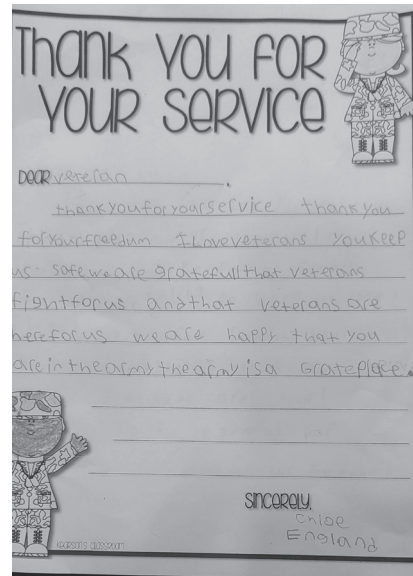 THANK YOU FOR
YOUR SERVICE
DEAR veteran.
thank you for your service thank you
for your freedum I Love veterans you keep
us safe we are gratefull that veterans
fight for us and that veterans are
here for us we are happy that you
are in the army the army is a Grate place.
SINCERELY,
Chloe
England